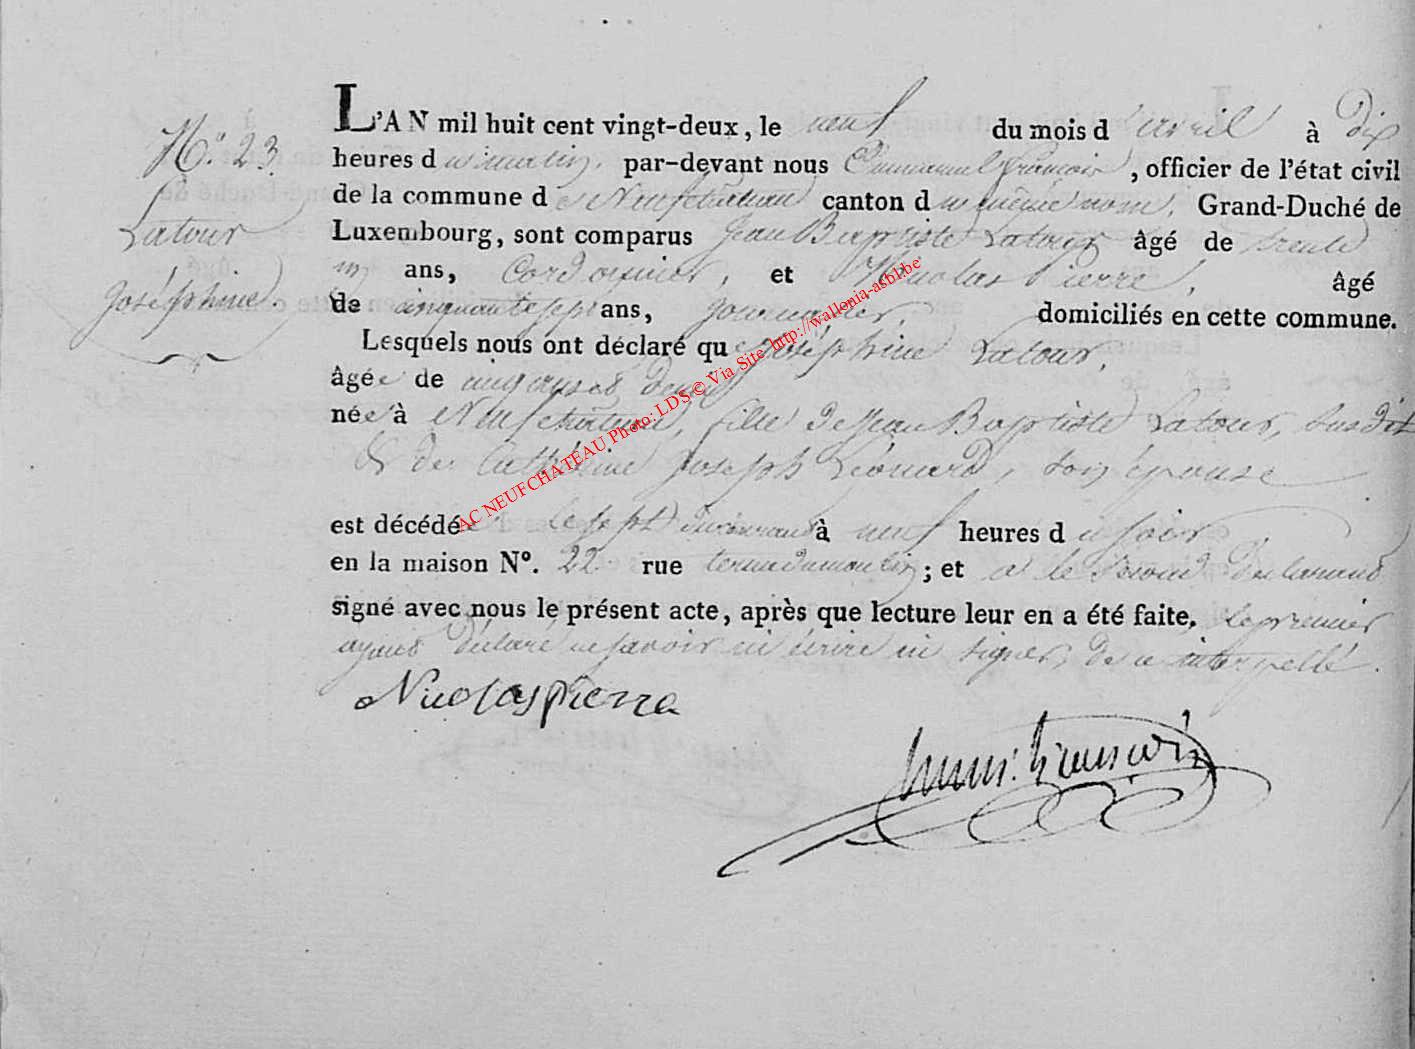 N.° 23.
Latour
Joséphine.
L'AN mil huit cent vingt-deux, le neuf du mois d'avril à dix
heures du matin, par-devant nous Emmanuel François, officier de l'état civil
de la commune de Neufchateau canton du même nom, Grand-Duché de
Luxembourg, sont comparus Jean Baptiste Latour âgé de trente
ans, Cordonnier, et Nicolas Pierre, âgé
de cinquante sept ans, journalier, domiciliés en cette commune.
Lesquels nous ont déclaré que Joséphine Latour,
âgée de cinq ans & demi
née à Neufchateau, fille de Jean Baptiste Latour, susdit
& de Cathérine Joseph Léonard, son épouse
est décédée le sept du courant à neuf heures du soir
en la maison N°. 22 rue terme du moulin; et a le second déclarant
signé avec nous le présent acte, après que lecture leur en a été faite, le premier
ayant déclaré ne savoir ni écrire ni signer, de ce interpellé.
Nicolas Pierre
Emm. François
AC NEUFCHATEAU Photo: LDS © Via Site http://wallonia-asbl.be